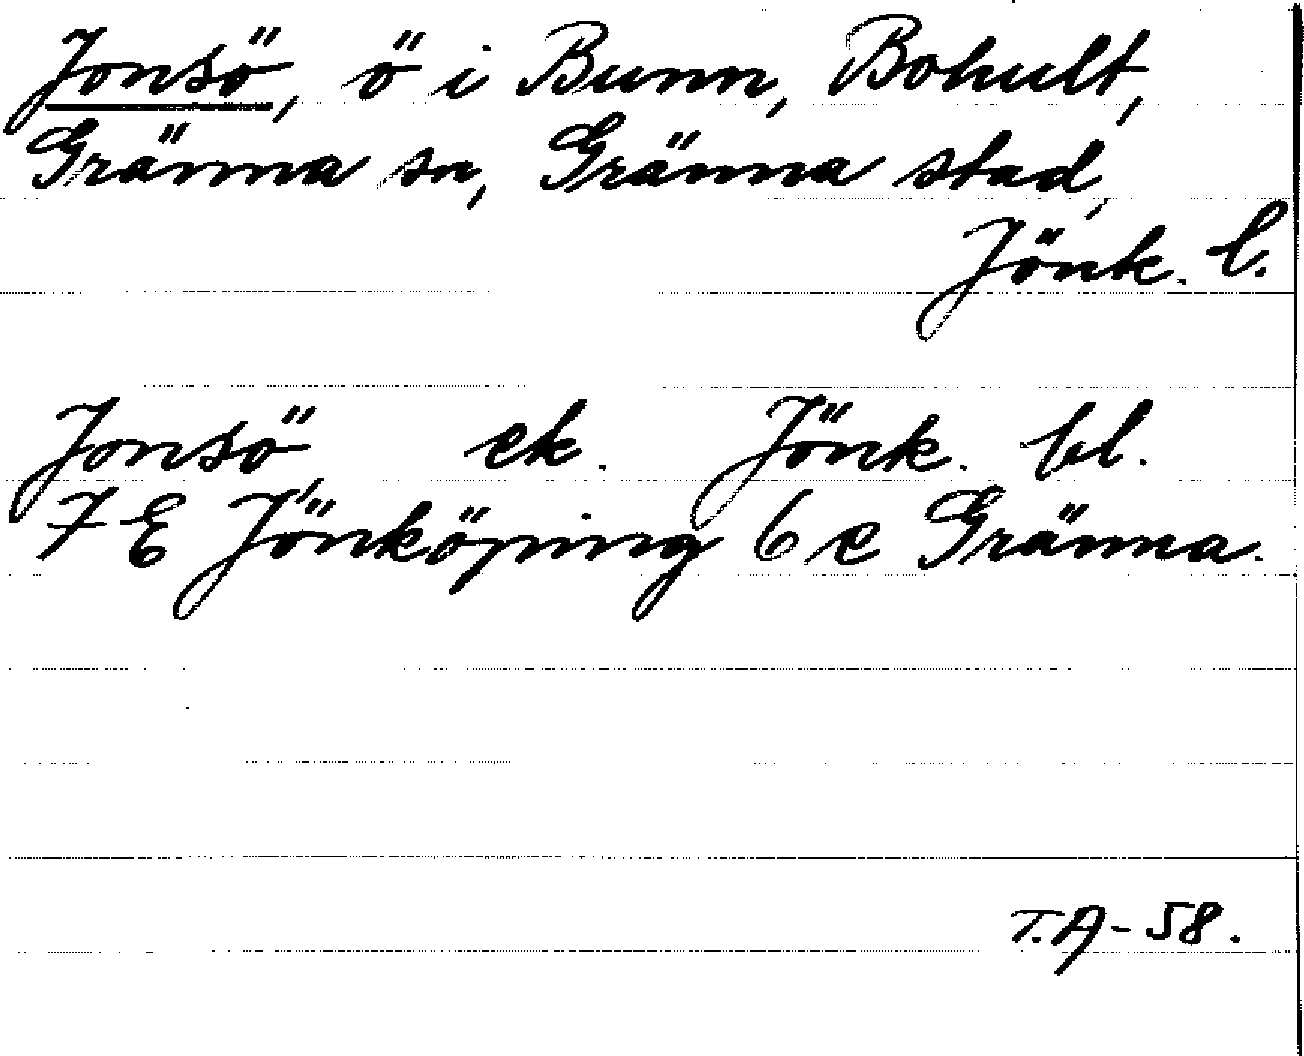 Jonsö, ö i Bunn, Bohult,
Gränna sn, Gränna stad,
Jönk. l.
Jonsö ek. Jönk. bl.
7 E Jönköping 6 e Gränna.
T.A-58.